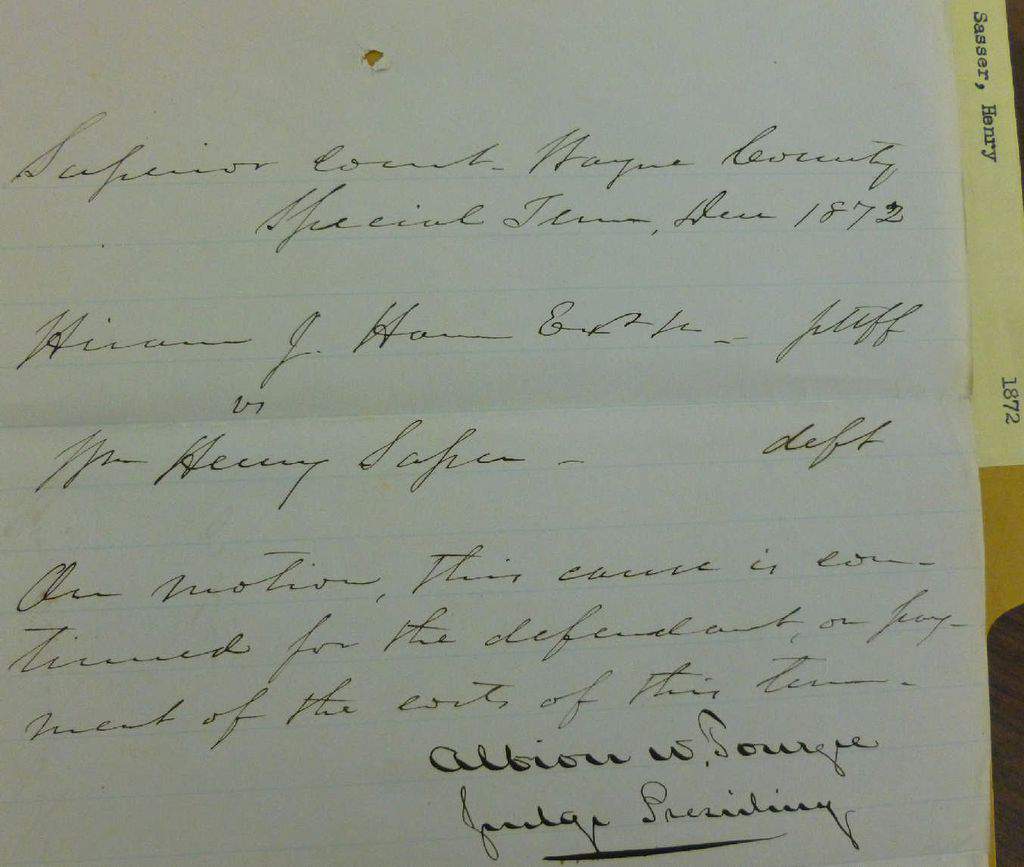 Superior Court - Wayne County
Special Term, Dec 1872
Hiram J. Ham - pltff
vs
Wm Henry Sasser - deft
On motion, this cause is con-
tinued for the defendant, on pay-
ment of the costs of this term.
Albion W. Tourgee
Judge Presiding
Sasser, Henry
1872